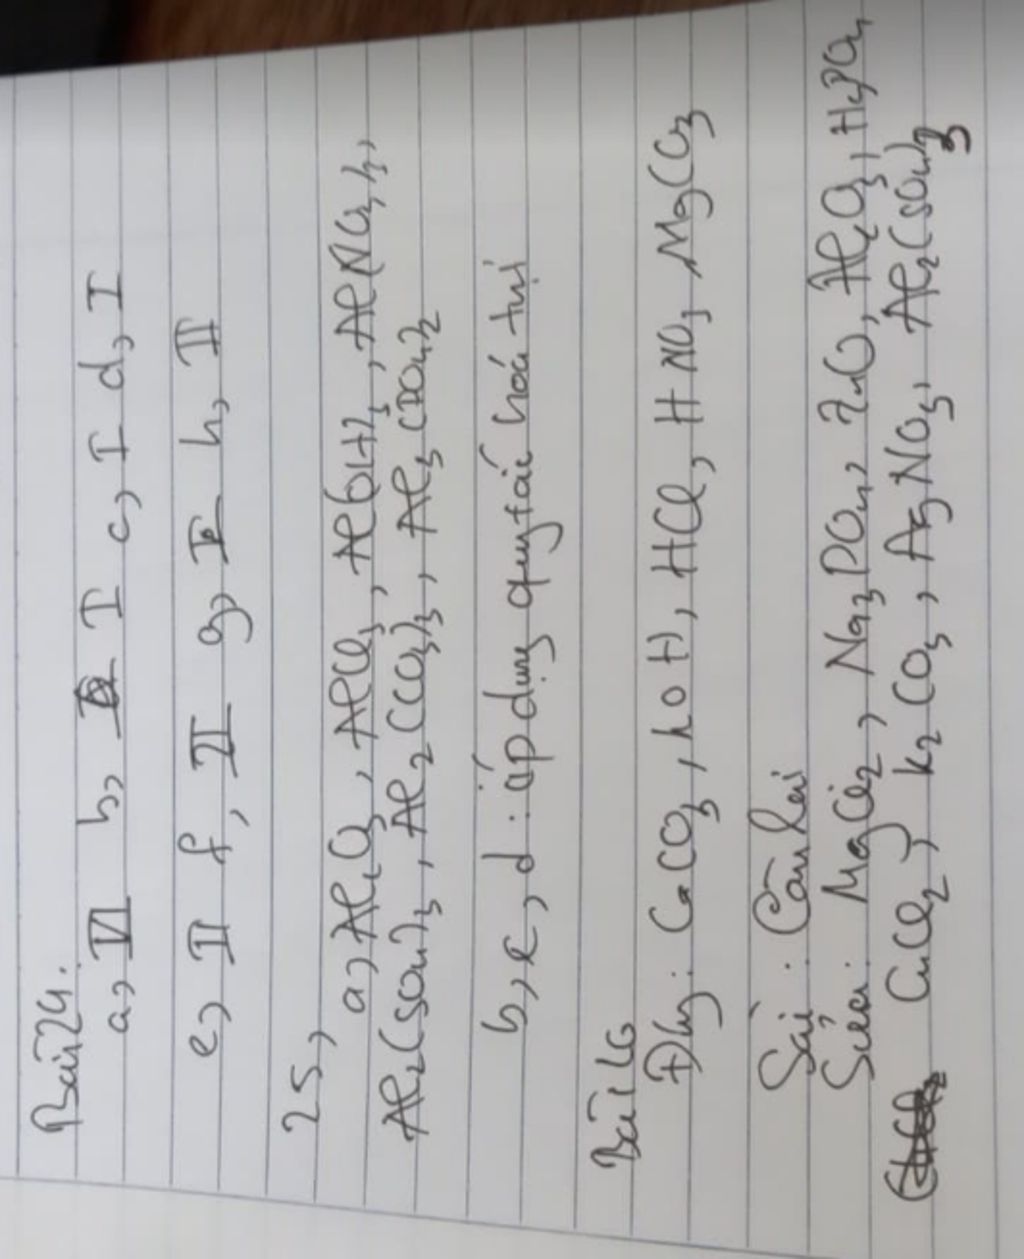 Bài 24.
a, VI b, I c, I d, I
e, II f, II g, I h, II
25,
a, Al2O3, AlCl3, Al(OH)3, Al(NO3)3,
Al2(SO4)3, Al2(CO3)3, Al3(PO4)2
b, c, d : áp dụng quy tắc hóa trị
Bài 26
Đúng: CaCO3, KOH, HCl, HNO3, MgCO3
Sai : Còn lại
Sửa: MgCl2, Na3PO4, ZnO, Al2O3, H3PO4
CuCl2, K2CO3, AgNO3, Al2(SO4)3